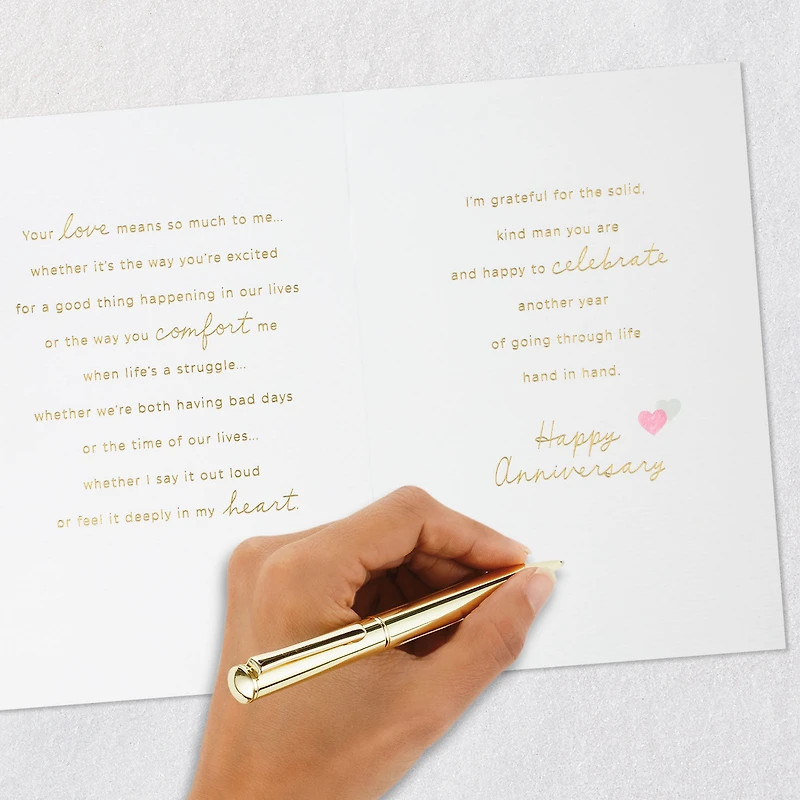 Your love means so much to me...
whether it's the way you're excited
for a good thing happening in our lives
or the way you comfort me
when life's a struggle...
whether we're both having bad days
or the time of our lives...
whether I say it out loud
or feel it deeply in my heart.
I'm grateful for the solid,
kind man you are
and happy to celebrate
another year
of going through life
hand in hand.
Happy
Anniversary